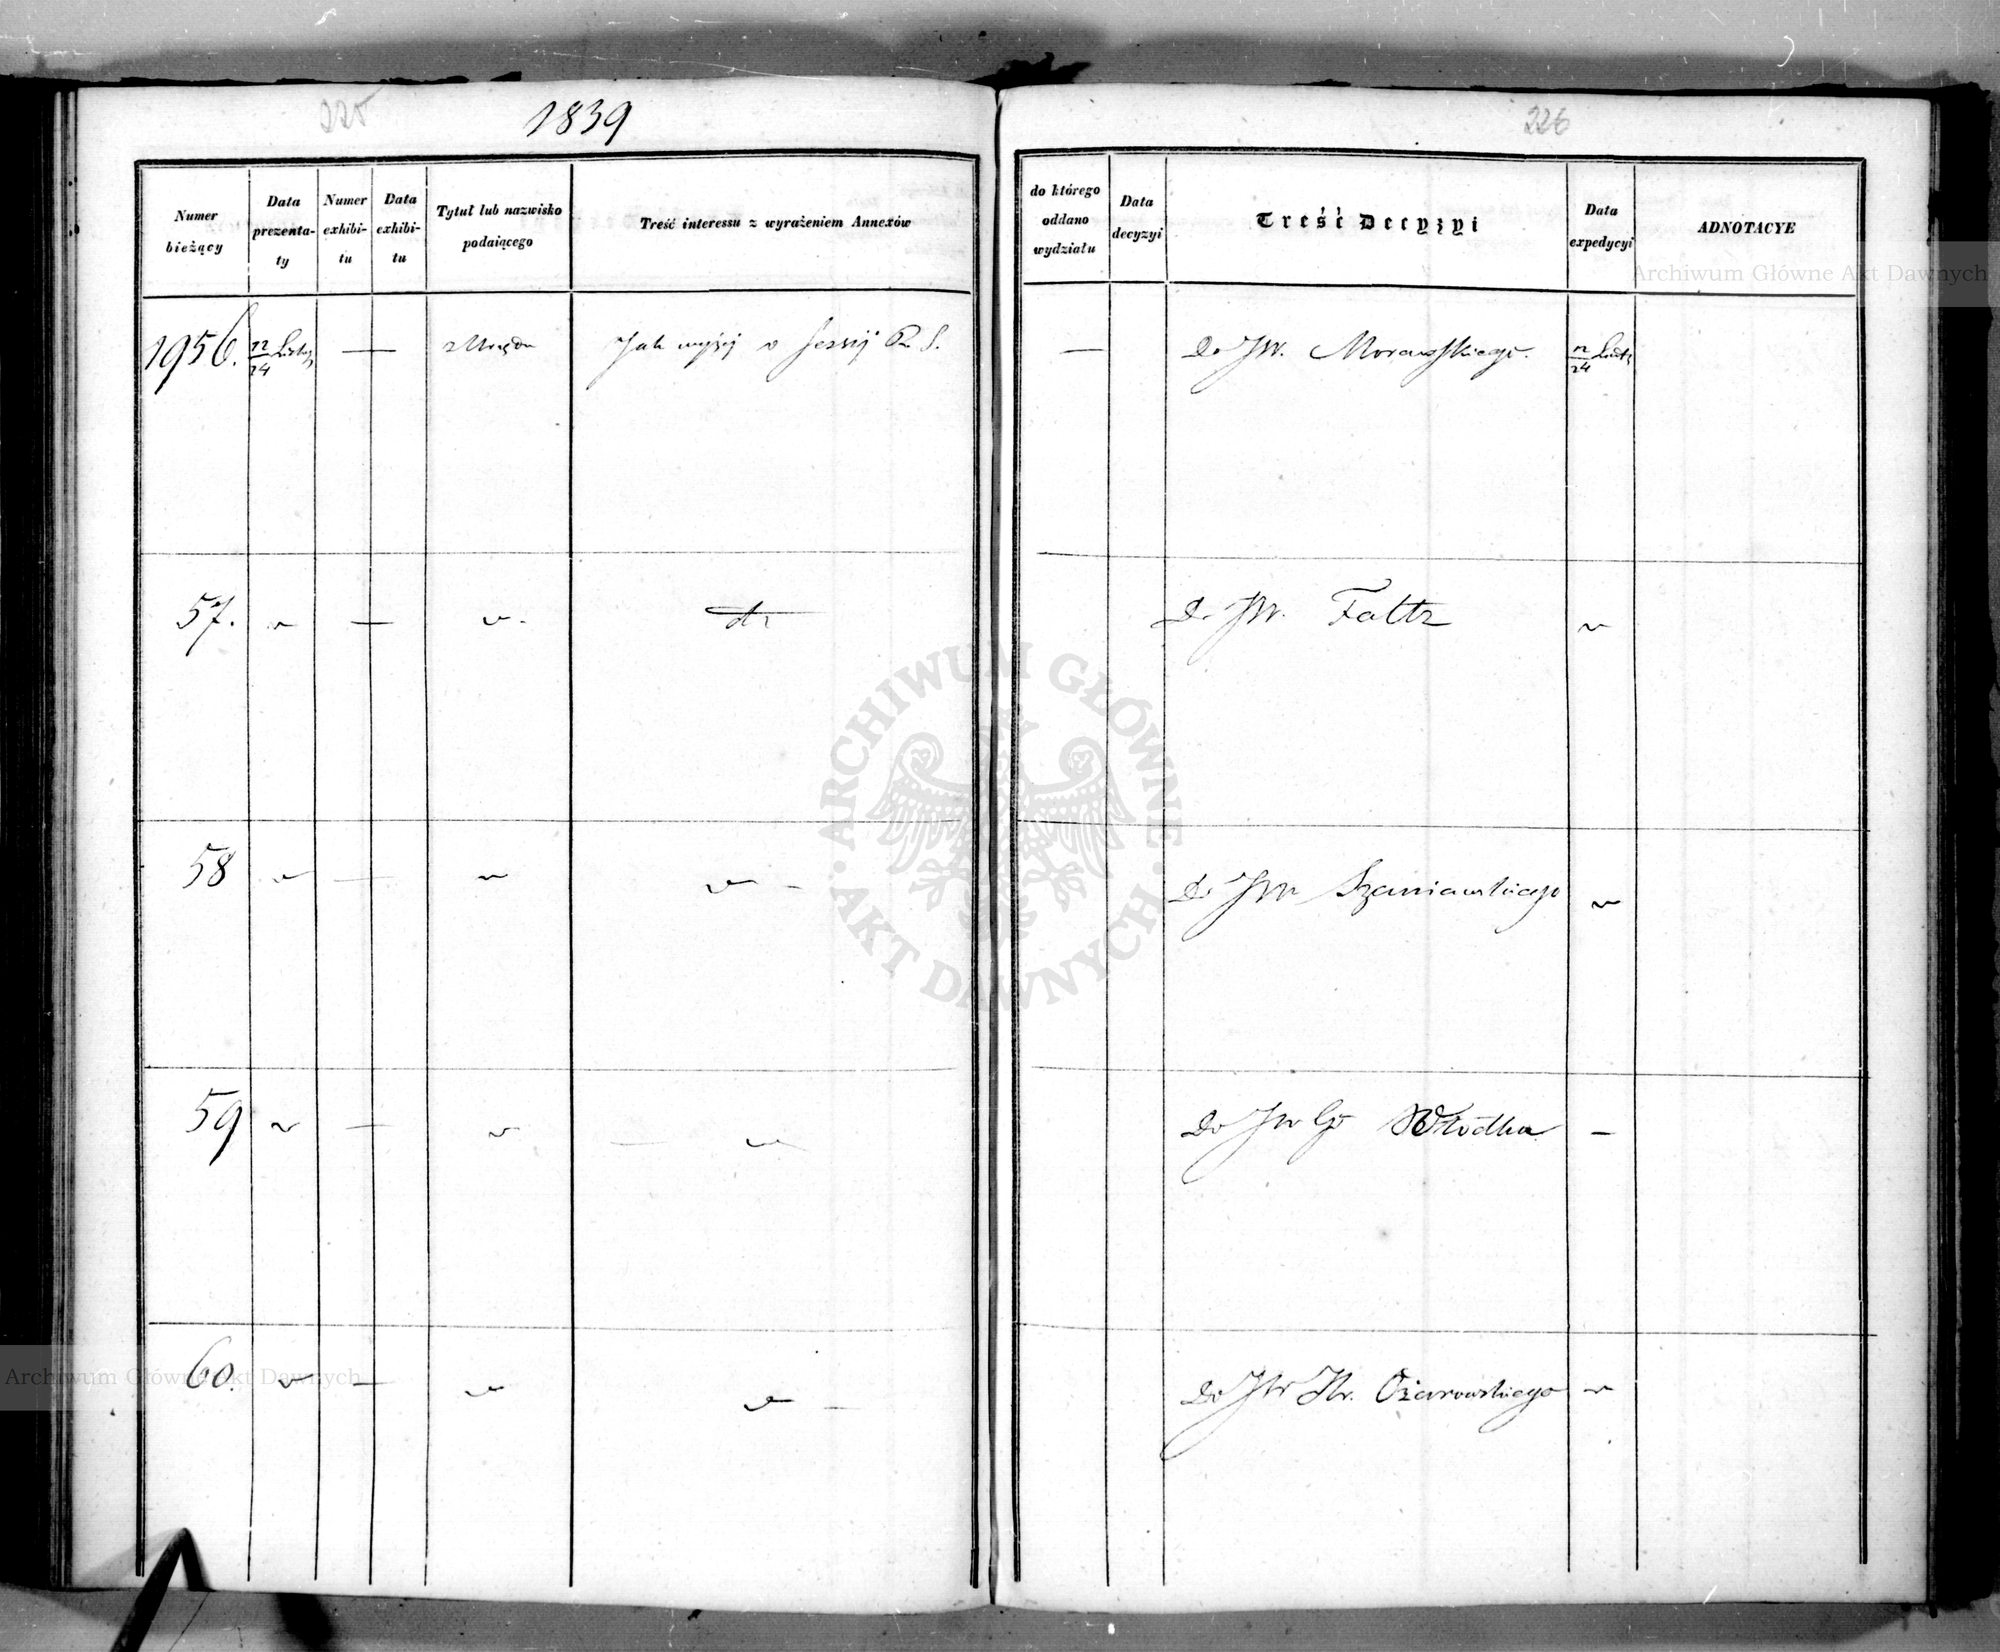 225
1839
Numer bieżący
Data prezenta-ty
Numer exhibi-tu
Data exhibi-tu
Tytuł lub nazwisko podaiącego
Treść interessu z wyrażeniem Annexów
1956. 12/24 Listop — z Urzędu Jak wyżej o Sessyi R. S.
57. " — " dto
58 " — " "
59 " — " — "
60. " — " " —
226
do którego oddano wydziału
Data decyzyi
Treść Decyzyi
Data expedycyi
ADNOTACYE
— Do JW. Morawskiego. 12/24 List
Do JW. Faltz "
Do JW Szaniawskiego "
Do JW Włodka —
Do JW Hr. Ożarowskiego "
ARCHIWUM GŁÓWNE
AKT DAWNYCH
Archiwum Główne Akt Dawnych
Archiwum Główne Akt Dawnych